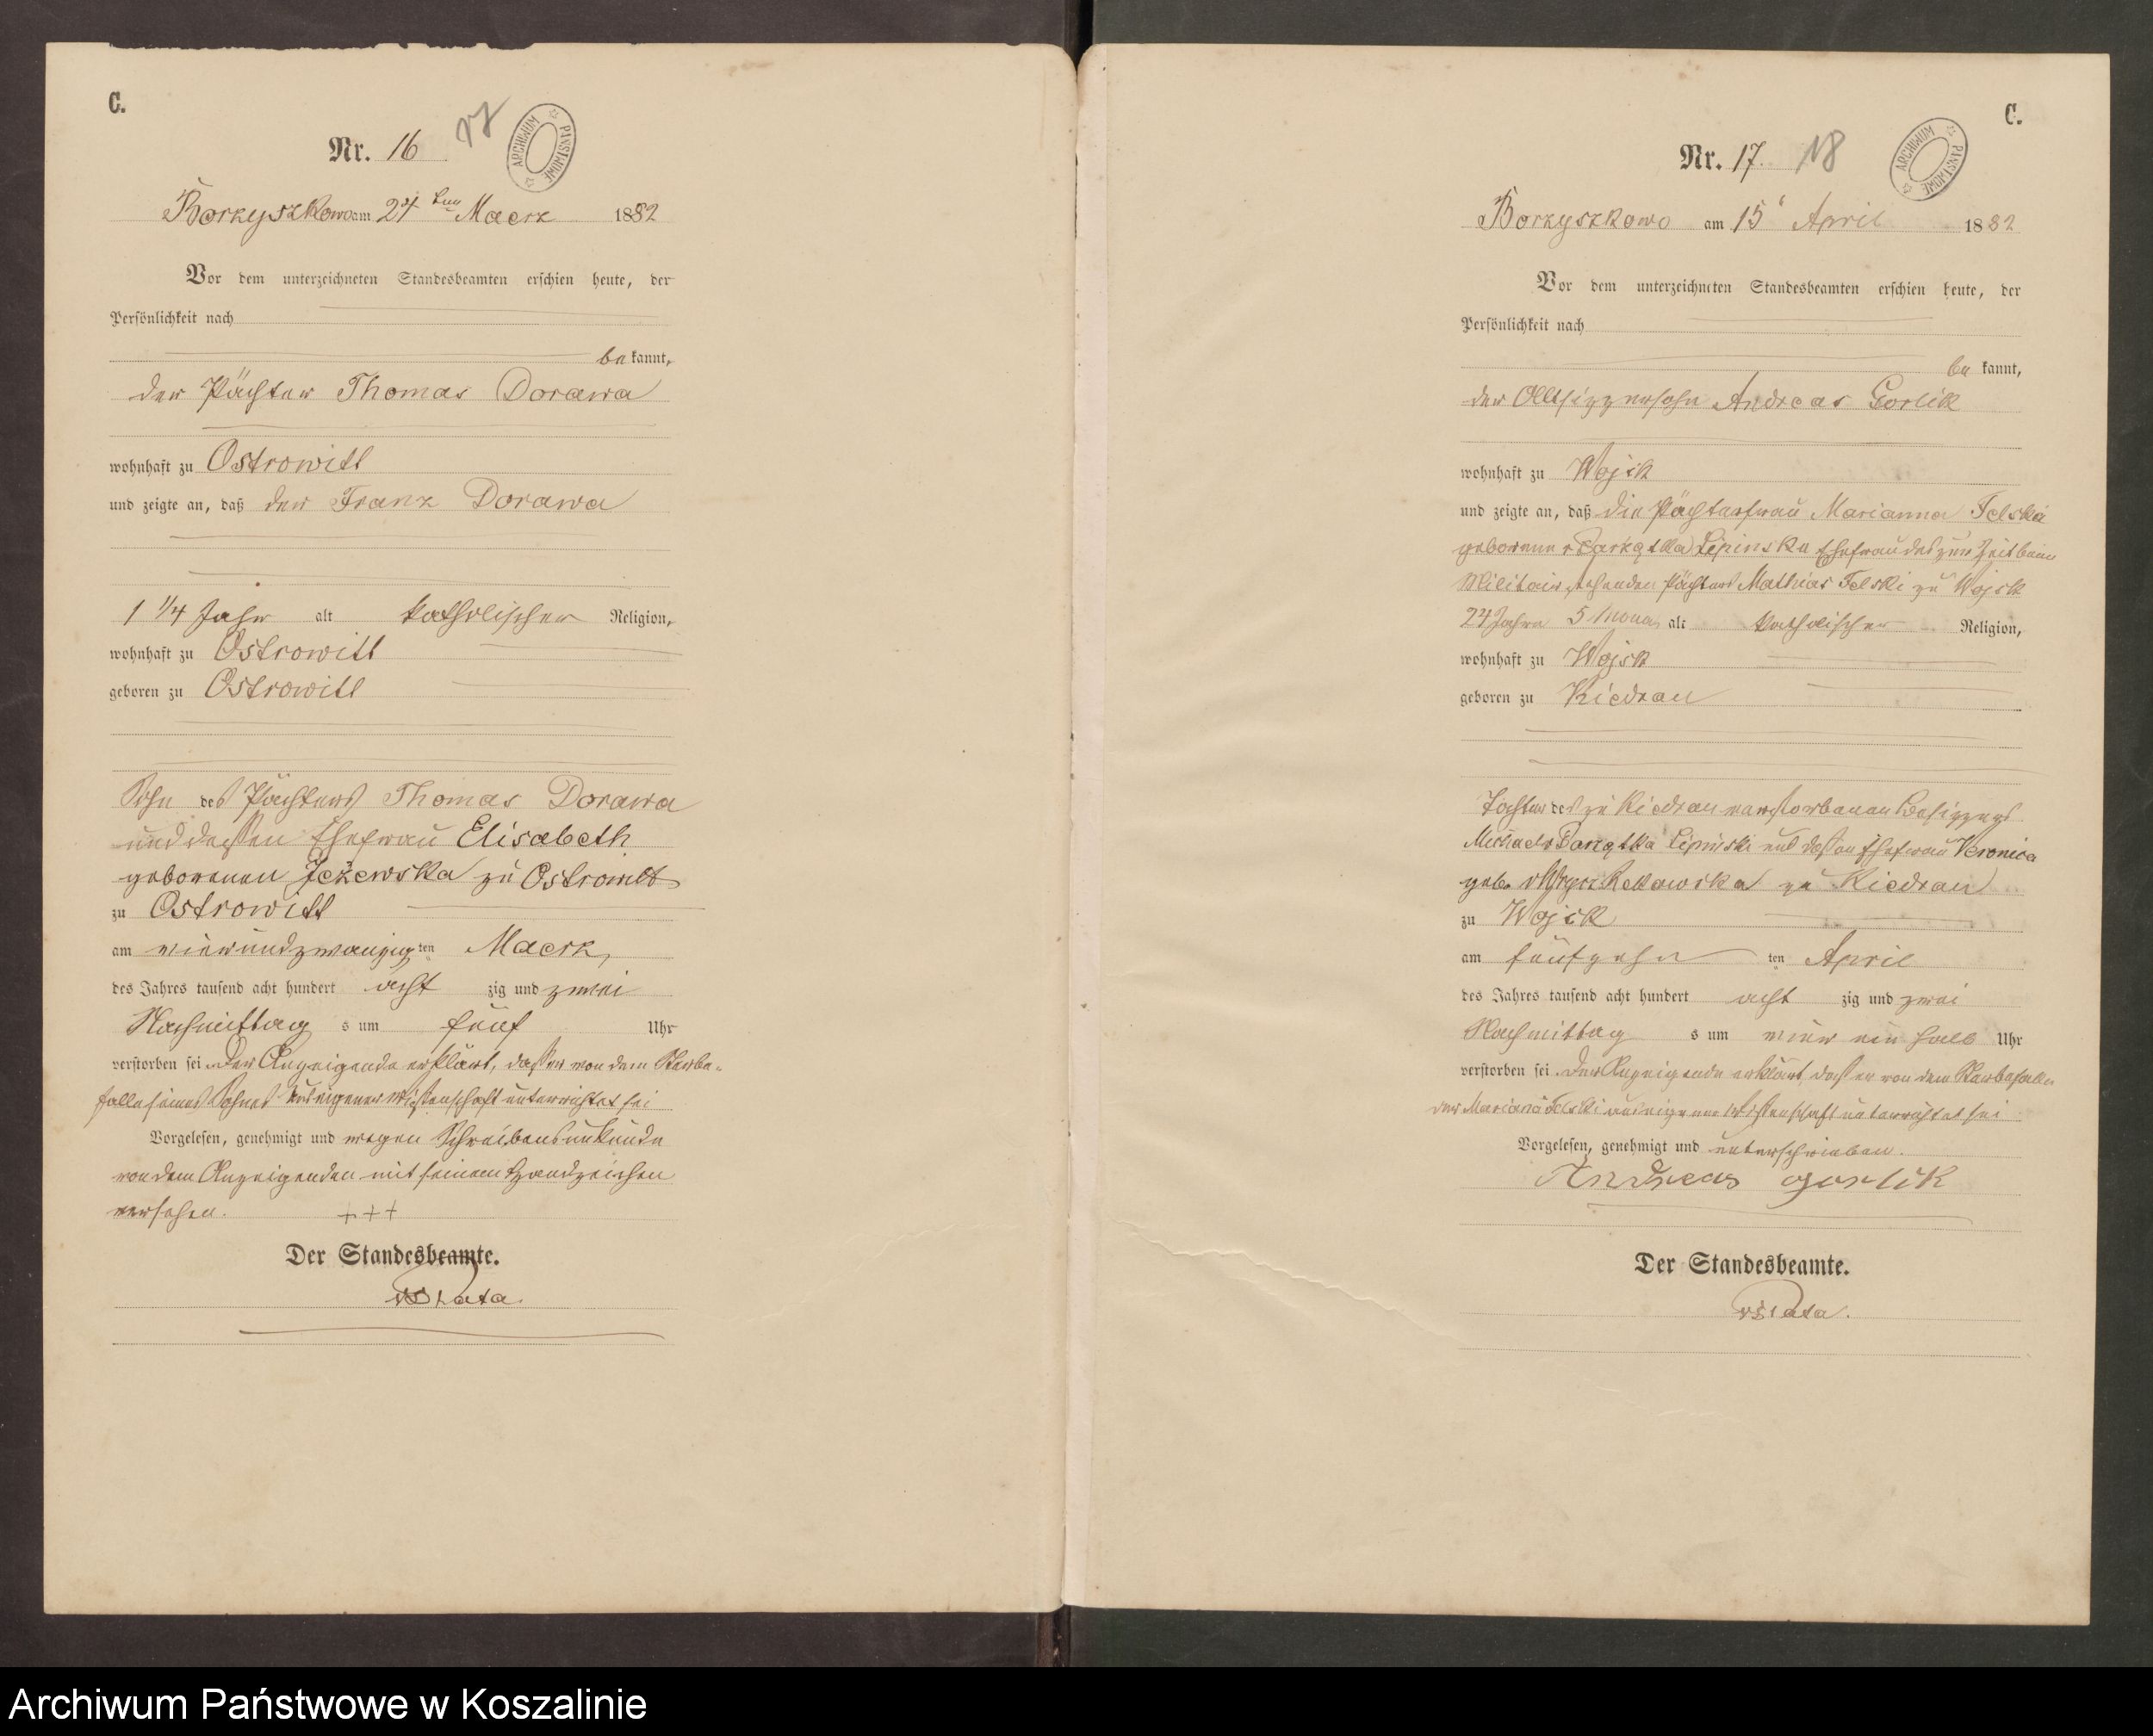 C.
Nr. 16
17
ARCHIWUM PAŃSTWOWE
Borzyszkowo am 24ten Maerz 1882
Vor dem unterzeichneten Standesbeamten erschien heute, der
Persönlichkeit nach
be kannt,
der Pächter Thomas Dorawa
wohnhaft zu Ostrowitt
und zeigte an, daß der Franz Dorawa
1 1/4 Jahr alt katholischer Religion,
wohnhaft zu Ostrowitt
geboren zu Ostrowitt
Sohn des Pächters Thomas Dorawa
und dessen Ehefrau Elisabeth
geborenen Jeżewska zu Ostrowitt
zu Ostrowitt
am vierundzwanzigten Maerz,
des Jahres tausend acht hundert acht zig und zwei
Nachmittag s um fünf Uhr
verstorben sei. Der Anzeigende erklärt, daß er von dem Sterbe-
falle seines Sohnes aus eigener Wissenschaft unterrichtet sei
Vorgelesen, genehmigt und wegen Schreibensunkunde
von dem Anzeigenden mit seinem Handzeichen
versehen. +++
Der Standesbeamte.
C.
Nr. 17.
18
ARCHIWUM PAŃSTWOWE
Borzyszkowo am 15 April 1882
Vor dem unterzeichneten Standesbeamten erschien heute, der
Persönlichkeit nach
be kannt,
der Altsitzersohn Andreas Gorlik
wohnhaft zu Wojsk
und zeigte an, daß die Pächterfrau Marianna Felska
geborene Lipinska Ehefrau des zur Zeit beim
Militair stehenden Pächters Mathias Felski zu Wojsk
24 Jahre 5 Mona alt katholischer Religion,
wohnhaft zu Wojsk
geboren zu Kiedrau
Tochter des zu Kiedrau verstorbenen Besitzers
Michael Lipinski und dessen Ehefrau Veronica
geb. zu Kiedrau
zu Wojsk
am fünfzehn ten April
des Jahres tausend acht hundert acht zig und zwei
Nachmittag s um vier ein halb Uhr
verstorben sei. Der Anzeigende erklärt, daß er von dem Sterbefalle
der Mariana Felski aus eigener Wissenschaft unterrichtet sei
Vorgelesen, genehmigt und unterschrieben.
Andreas gorlik
Der Standesbeamte.
Archiwum Państwowe w Koszalinie